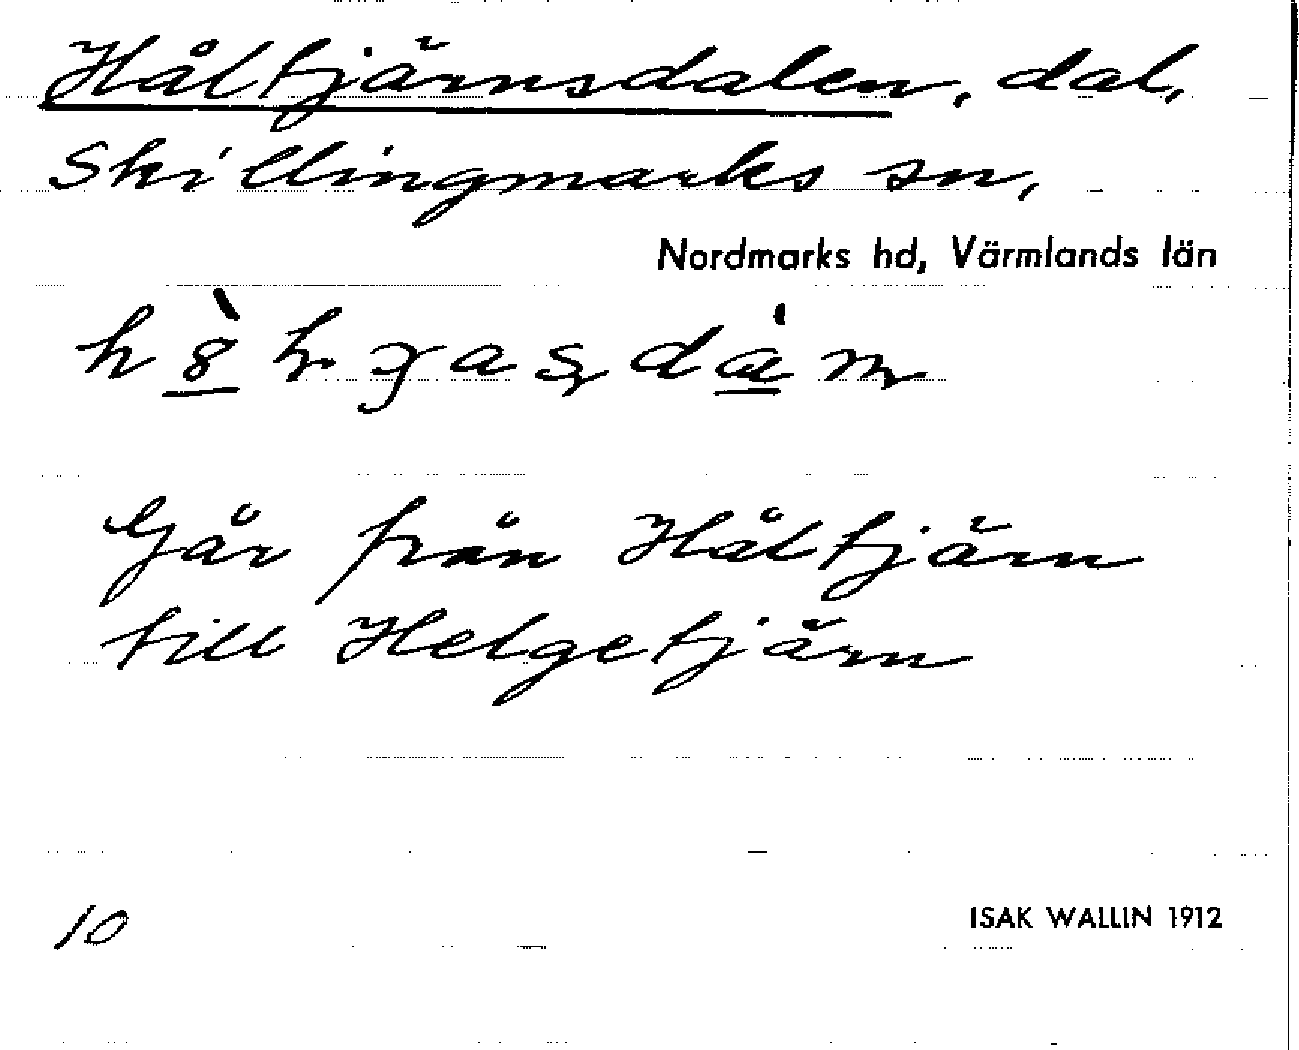 Håltjärnsdalen, dal,
Skillingmarks sn,
Nordmarks hd, Värmlands län
Går från Håltjärn
till Helgetjärn
10
ISAK WALLIN 1912